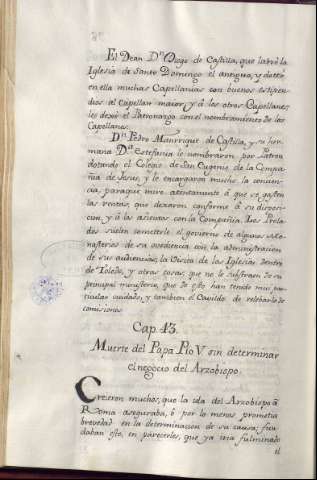 El Dean Dn. Diego de Castilla, que labró la
Iglesia de Santo Domingo el antiguo, y dotó
en ella muchas Capellanias con buenos estipen-
dios al Capellan maior, y á los otros Capellanes,
les dexó el Patronazgo con el nombramiento de las
Capellanias.
Dn. Pedro Manrrique de Castilla, y su her-
mana Da. Estefania le nombraron por Patron
dotando el Colegio de San Eugenio de la Compa-
ñia de Jesus, y le encargaron mucho la concien-
cia, paraque mire atentamente á que se gasten
las rentas, que dexaron conforme á su disposi-
cion, y á los asientos con la Compañia. Los Prela-
dos suelen cometerle el govierno de algunos Mo-
nasterios de su obediencia con la administracion
de sus audiencias, la Visita de las Iglesias dentro
de Toledo, y otras cosas, que no le distraen de su
principal ministerio, que de esto han tenido mui par-
ticular cuidado, y tambien el Cavildo de relebarlo de
comisiones.
Cap. 13.
Muerte del Papa Pio V sin determinar
el negocio del Arzobispo.
Creieron muchos, que la ida del Arzobispo á
Roma aseguraba, ó por lo menos prometia
brevedad en la determinacion de su causa; fun-
daban esto, en parecerles, que ya iva fulminado
el